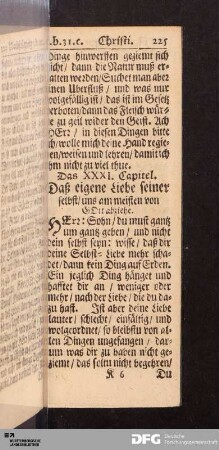 .b.31.c. Christi. 225
Dinge hinwerffen geziemt sich
nicht/ dann die Natur muß er-
halten werden/ Suchet man aber
einen Uberfluß/ und was nur
wolgefällig ist/ das ist im Gesetz
verboten/ dann das Fleisch würde
de zu geil wider den Geist. Ach
HErr/ in diesen Dingen bitte
ich/ wolle mich deine Hand regie-
ren/weisen und lehren/ damit ich
ihm nicht zu viel thue.
Das XXXI. Capitel.
Daß eigene Liebe seiner
selbst/ uns am meisten von
GOtt abziehe.
HErr: Sohn/ du must gantz
um gantz geben/ und nicht
dein selbst seyn: wisse/ daß dir
deine Selbst-Liebe mehr scha-
det/ dann kein Ding auf Erden.
Ein jeglich Ding hänget und
hafftet dir an/ weniger oder
mehr/ nach der Liebe/ die du da-
zu hast. Ist aber deine Liebe
lauter/ schlecht/ einfältig/ und
wolgeordnet/ so bleibstu von al-
len Dingen ungefangen/ dar-
um was dir zu haben nicht ge-
ziemt/ das soltu nicht begehren/
K 6 Du
DFG Deutsche
Forschungsgemeinschaft